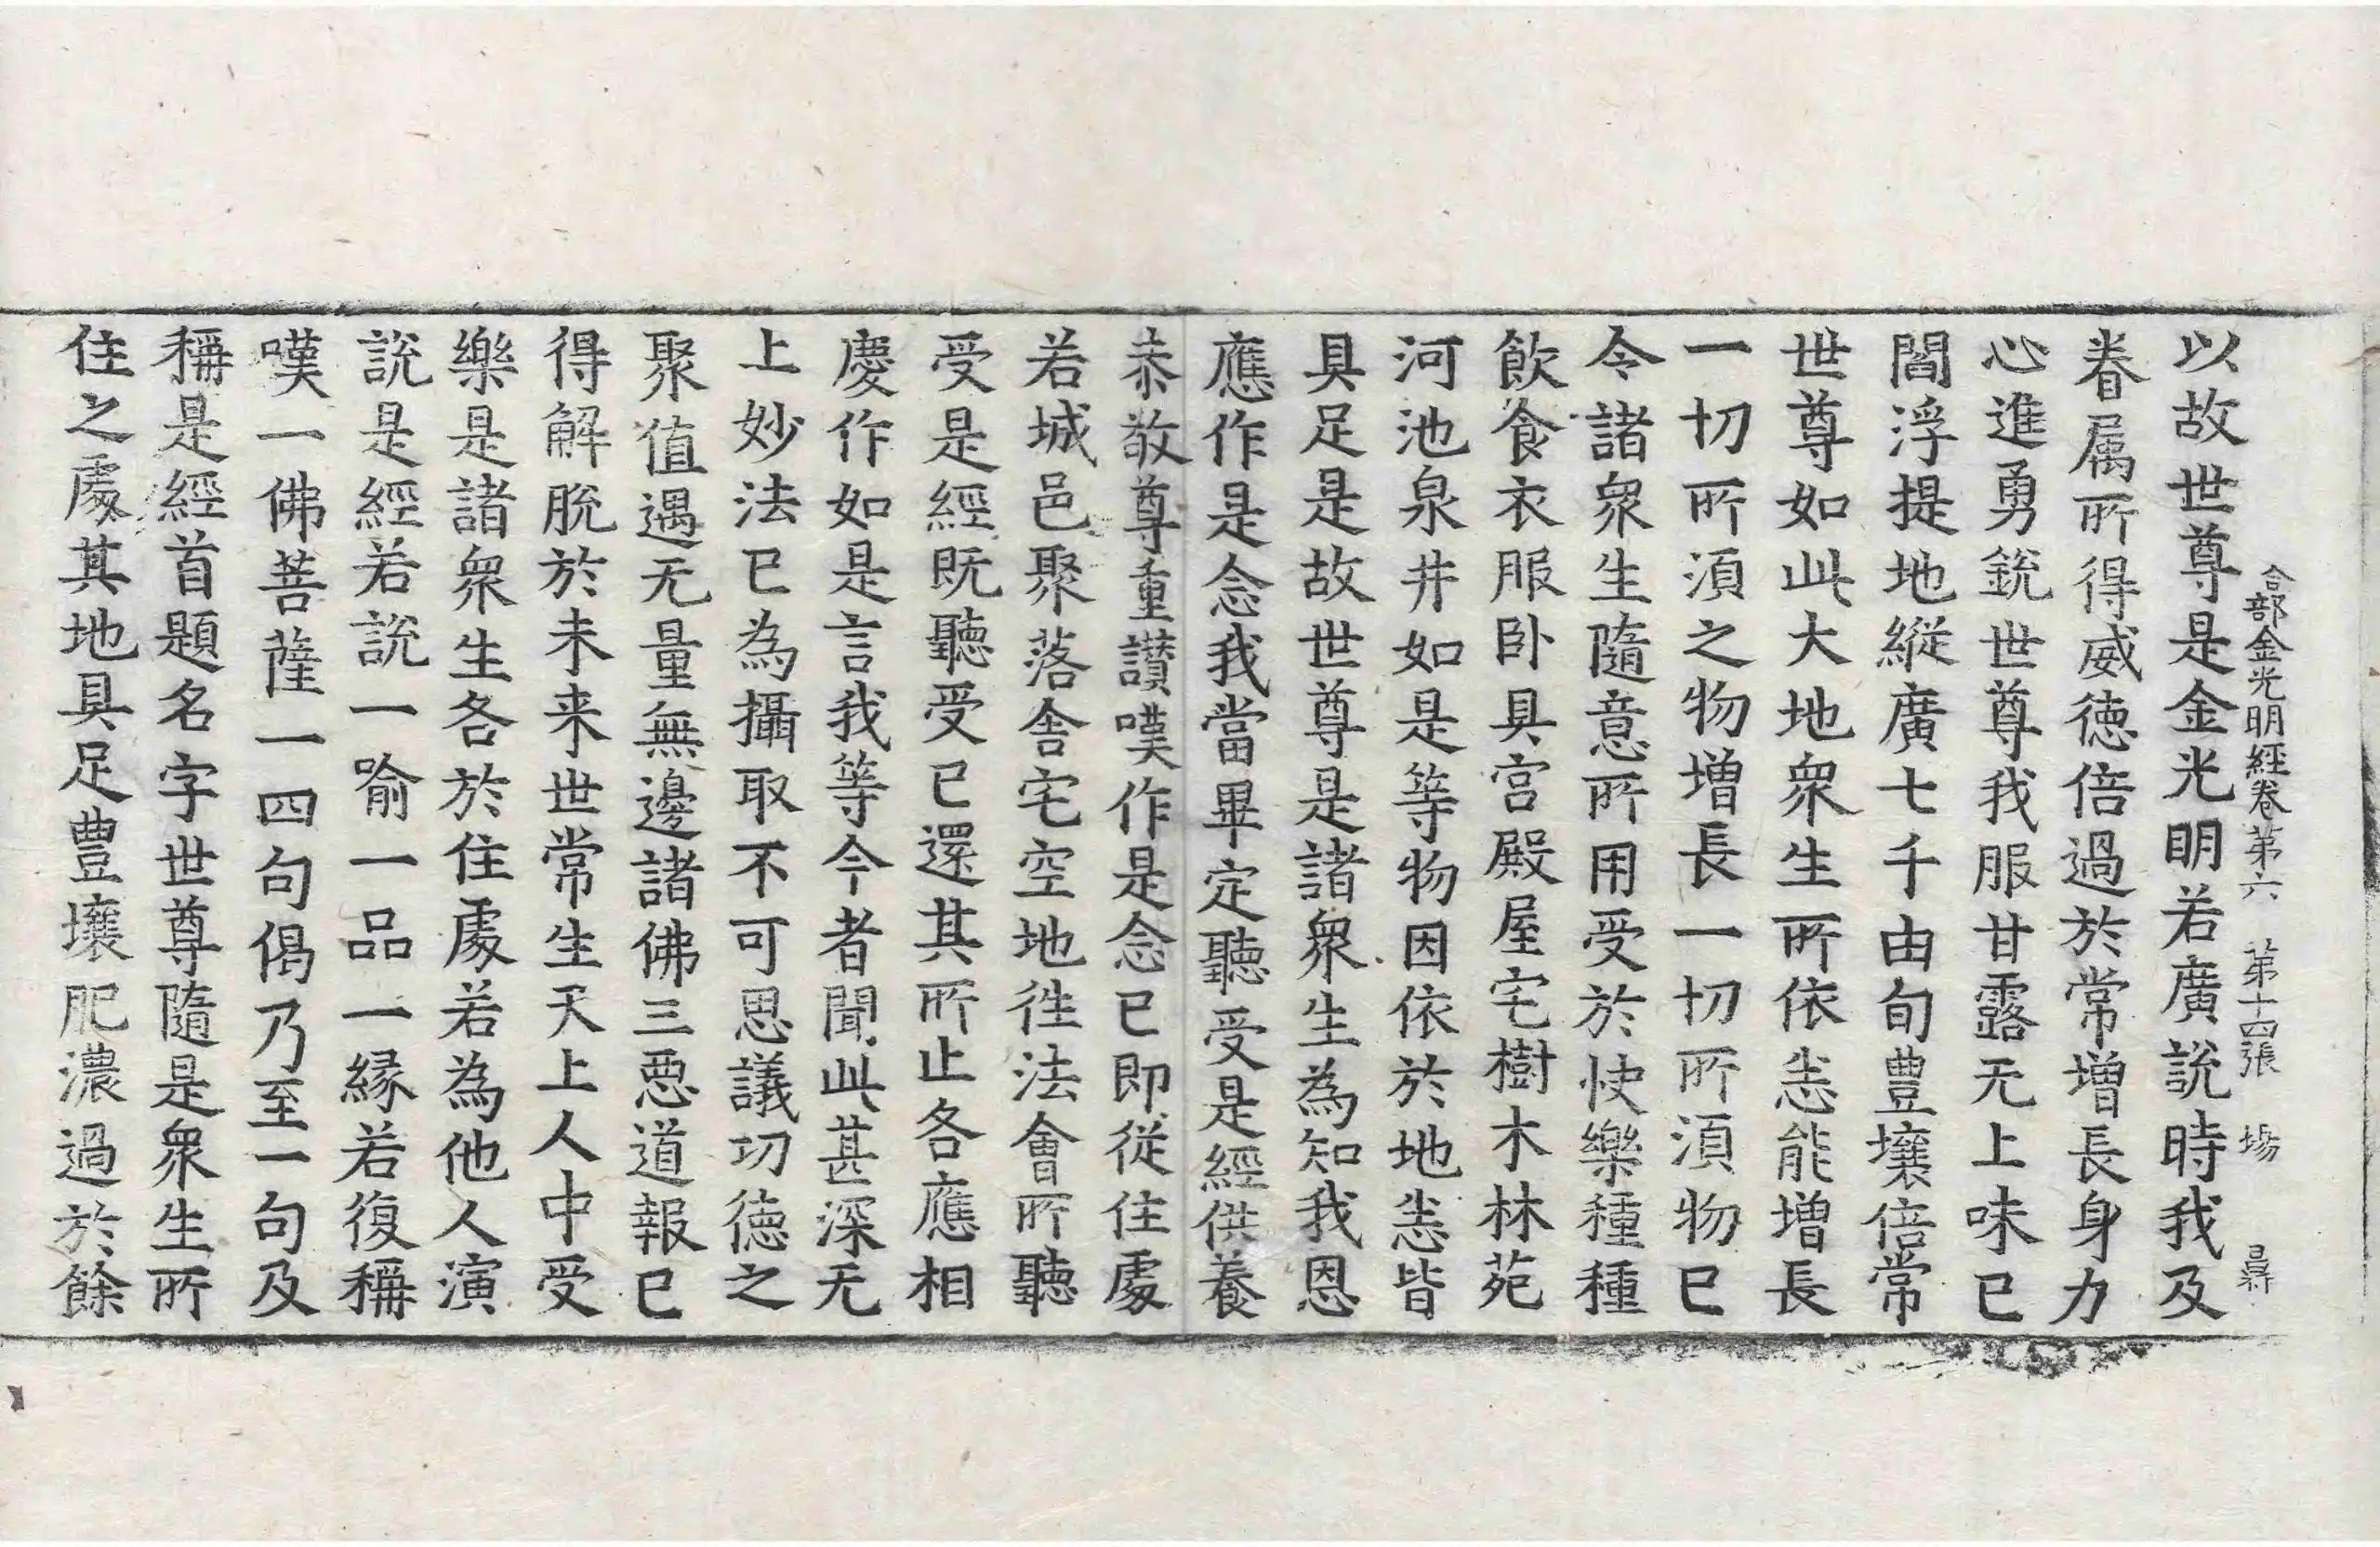 合部金光明經卷第六　第十四張　場
以故世尊是金光明若廣說時我及
眷属所得威德倍過於常增長身力
心進勇銳世尊我服甘露无上味已
閻浮提地縱廣七千由旬豊壤倍常
世尊如此大地衆生所依悉能增長
一切所須之物增長一切所須物已
令諸衆生隨意所用受於快樂種種
飲食衣服卧具宮殿屋宅樹木林苑
河池泉井如是等物因依於地悉皆
具足是故世尊是諸衆生為知我恩
應作是念我當畢定聽受是經供養
恭敬尊重讃嘆作是念已即從住處
若城邑聚落舍宅空地往法會所聽
受是經既聽受已還其所止各應相
慶作如是言我等今者聞此甚深无
上妙法已為攝取不可思議功德之
聚值遇无量無邊諸佛三惡道報已
得解脫於未来世常生天上人中受
樂是諸衆生各於住處若為他人演
說是經若說一喻一品一緣若復稱
嘆一佛菩薩一四句偈乃至一句及
稱是經首題名字世尊隨是衆生所
住之處其地具足豊壤肥濃過於餘